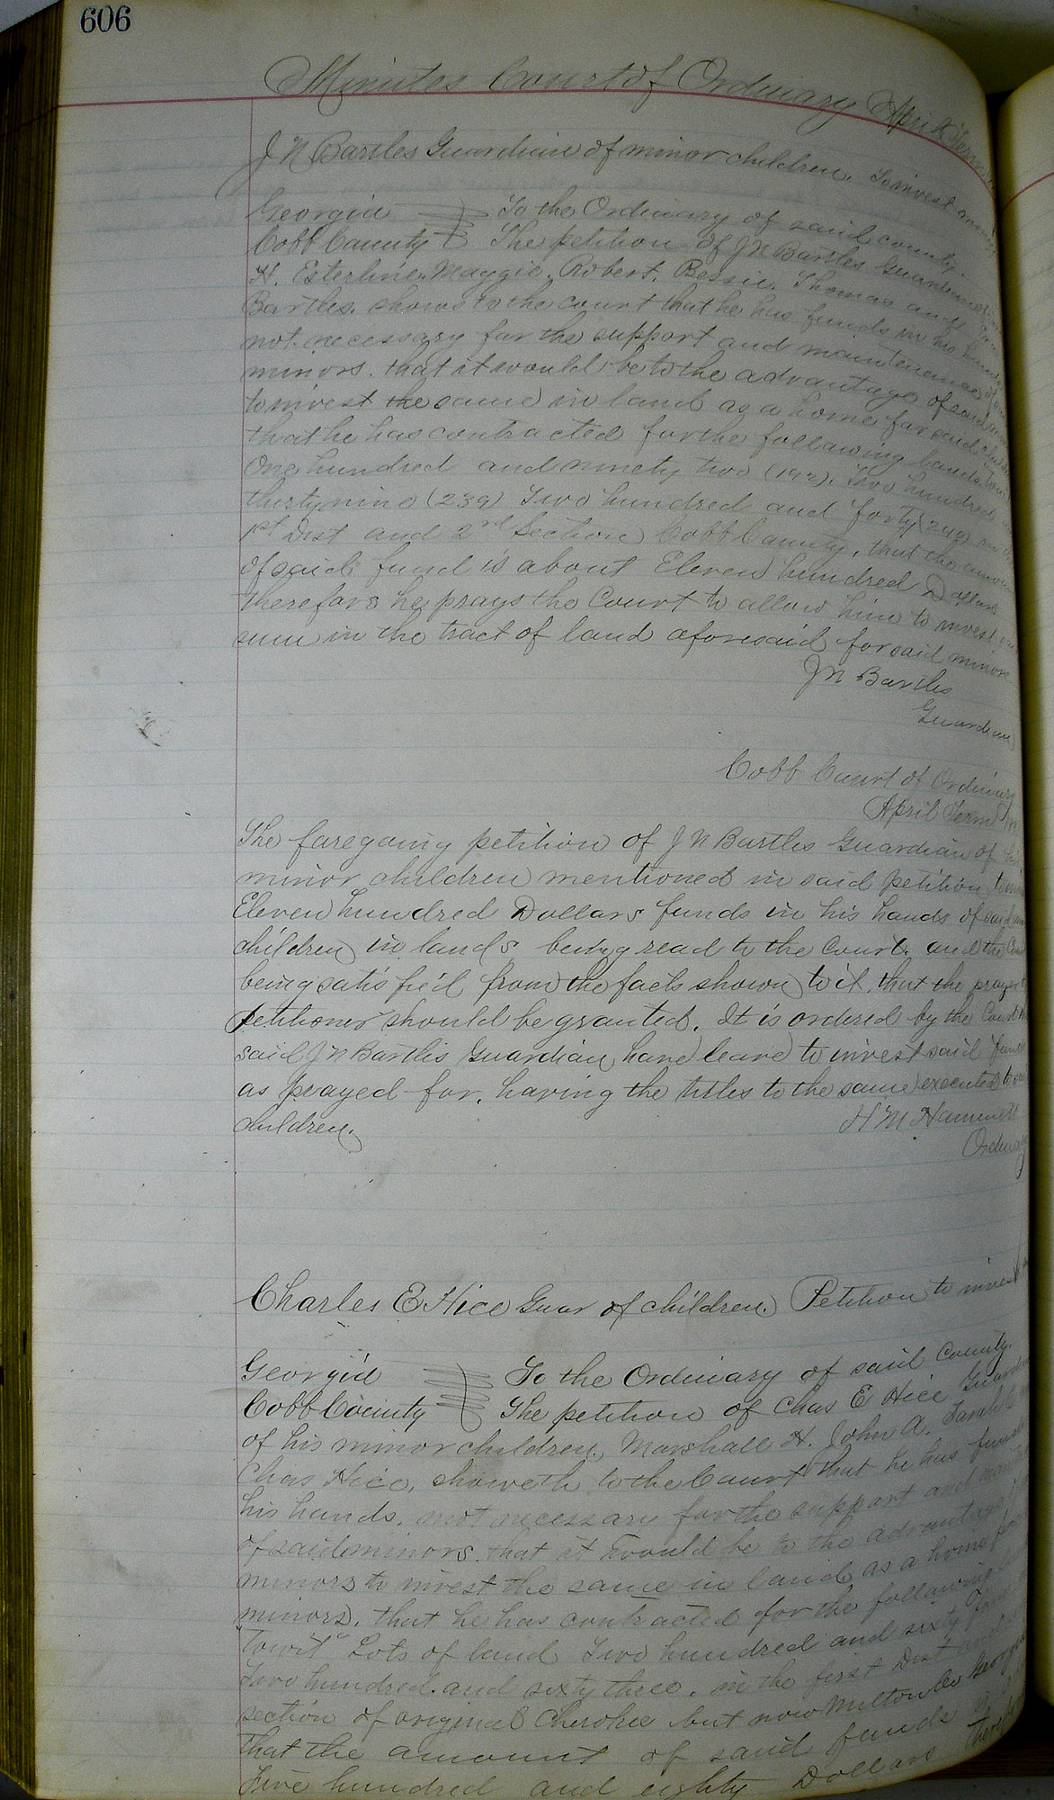 606
Minutes Court of Ordinary April Term
J N Bartles Guardian of minor children. To invest
Georgia To the Ordinary of said county.
Cobb County The petition of J N Bartles Guardian of
H. Esterline, Maggie, Robert, Bessie, Thomas and
Bartles. shows to the court that he has funds in his hands
not necessary for the support and maintenance of
minors. that it would be to the advantage of said
to invest the same in land as a home for said
that he has contracted for the following lands
One hundred and ninety two (192). Two hundred
thirty nine (239) Two hundred and forty (240)
1st Dist and 2nd Section Cobb County, that the amount
of said fund is about Eleven hundred Dollars
therefore he prays the Court to allow him to invest
sum in the tract of land aforesaid for said minors
J N Bartles
Guardian
Cobb Court of Ordinary
April Term
The foregoing petition of J N Bartles Guardian of
minor children mentioned in said petition to
Eleven hundred Dollars funds in his hands of said
children in lands being read to the Court. and the
being satisfied from the facts shown to it, that the prayer
petitioner should be granted. It is ordered by the Court
said J N Bartles Guardian have leave to invest said funds
as prayed for, having the titles to the same executed to
children.
H M Hammett
Ordinary
Charles E Hice Guar of children. Petition to invest
Georgia To the Ordinary of said County.
Cobb County The petition of Chas E Hice Guardian
of his minor children, Marshall H. John A.
Chas Hice, showeth to the Court that he has funds
his hands, not necessary for the support and
of said minors. that it would be to the advantage
minors to invest the same in land as a home for
minors. that he has contracted for the following
towit" Lots of land Two hundred and sixty
Two hundred and sixty three. in the first Dist and
section of original Cherokee but now Milton Co Georgia
that the amount of said funds is
Five hundred and eighty Dollars